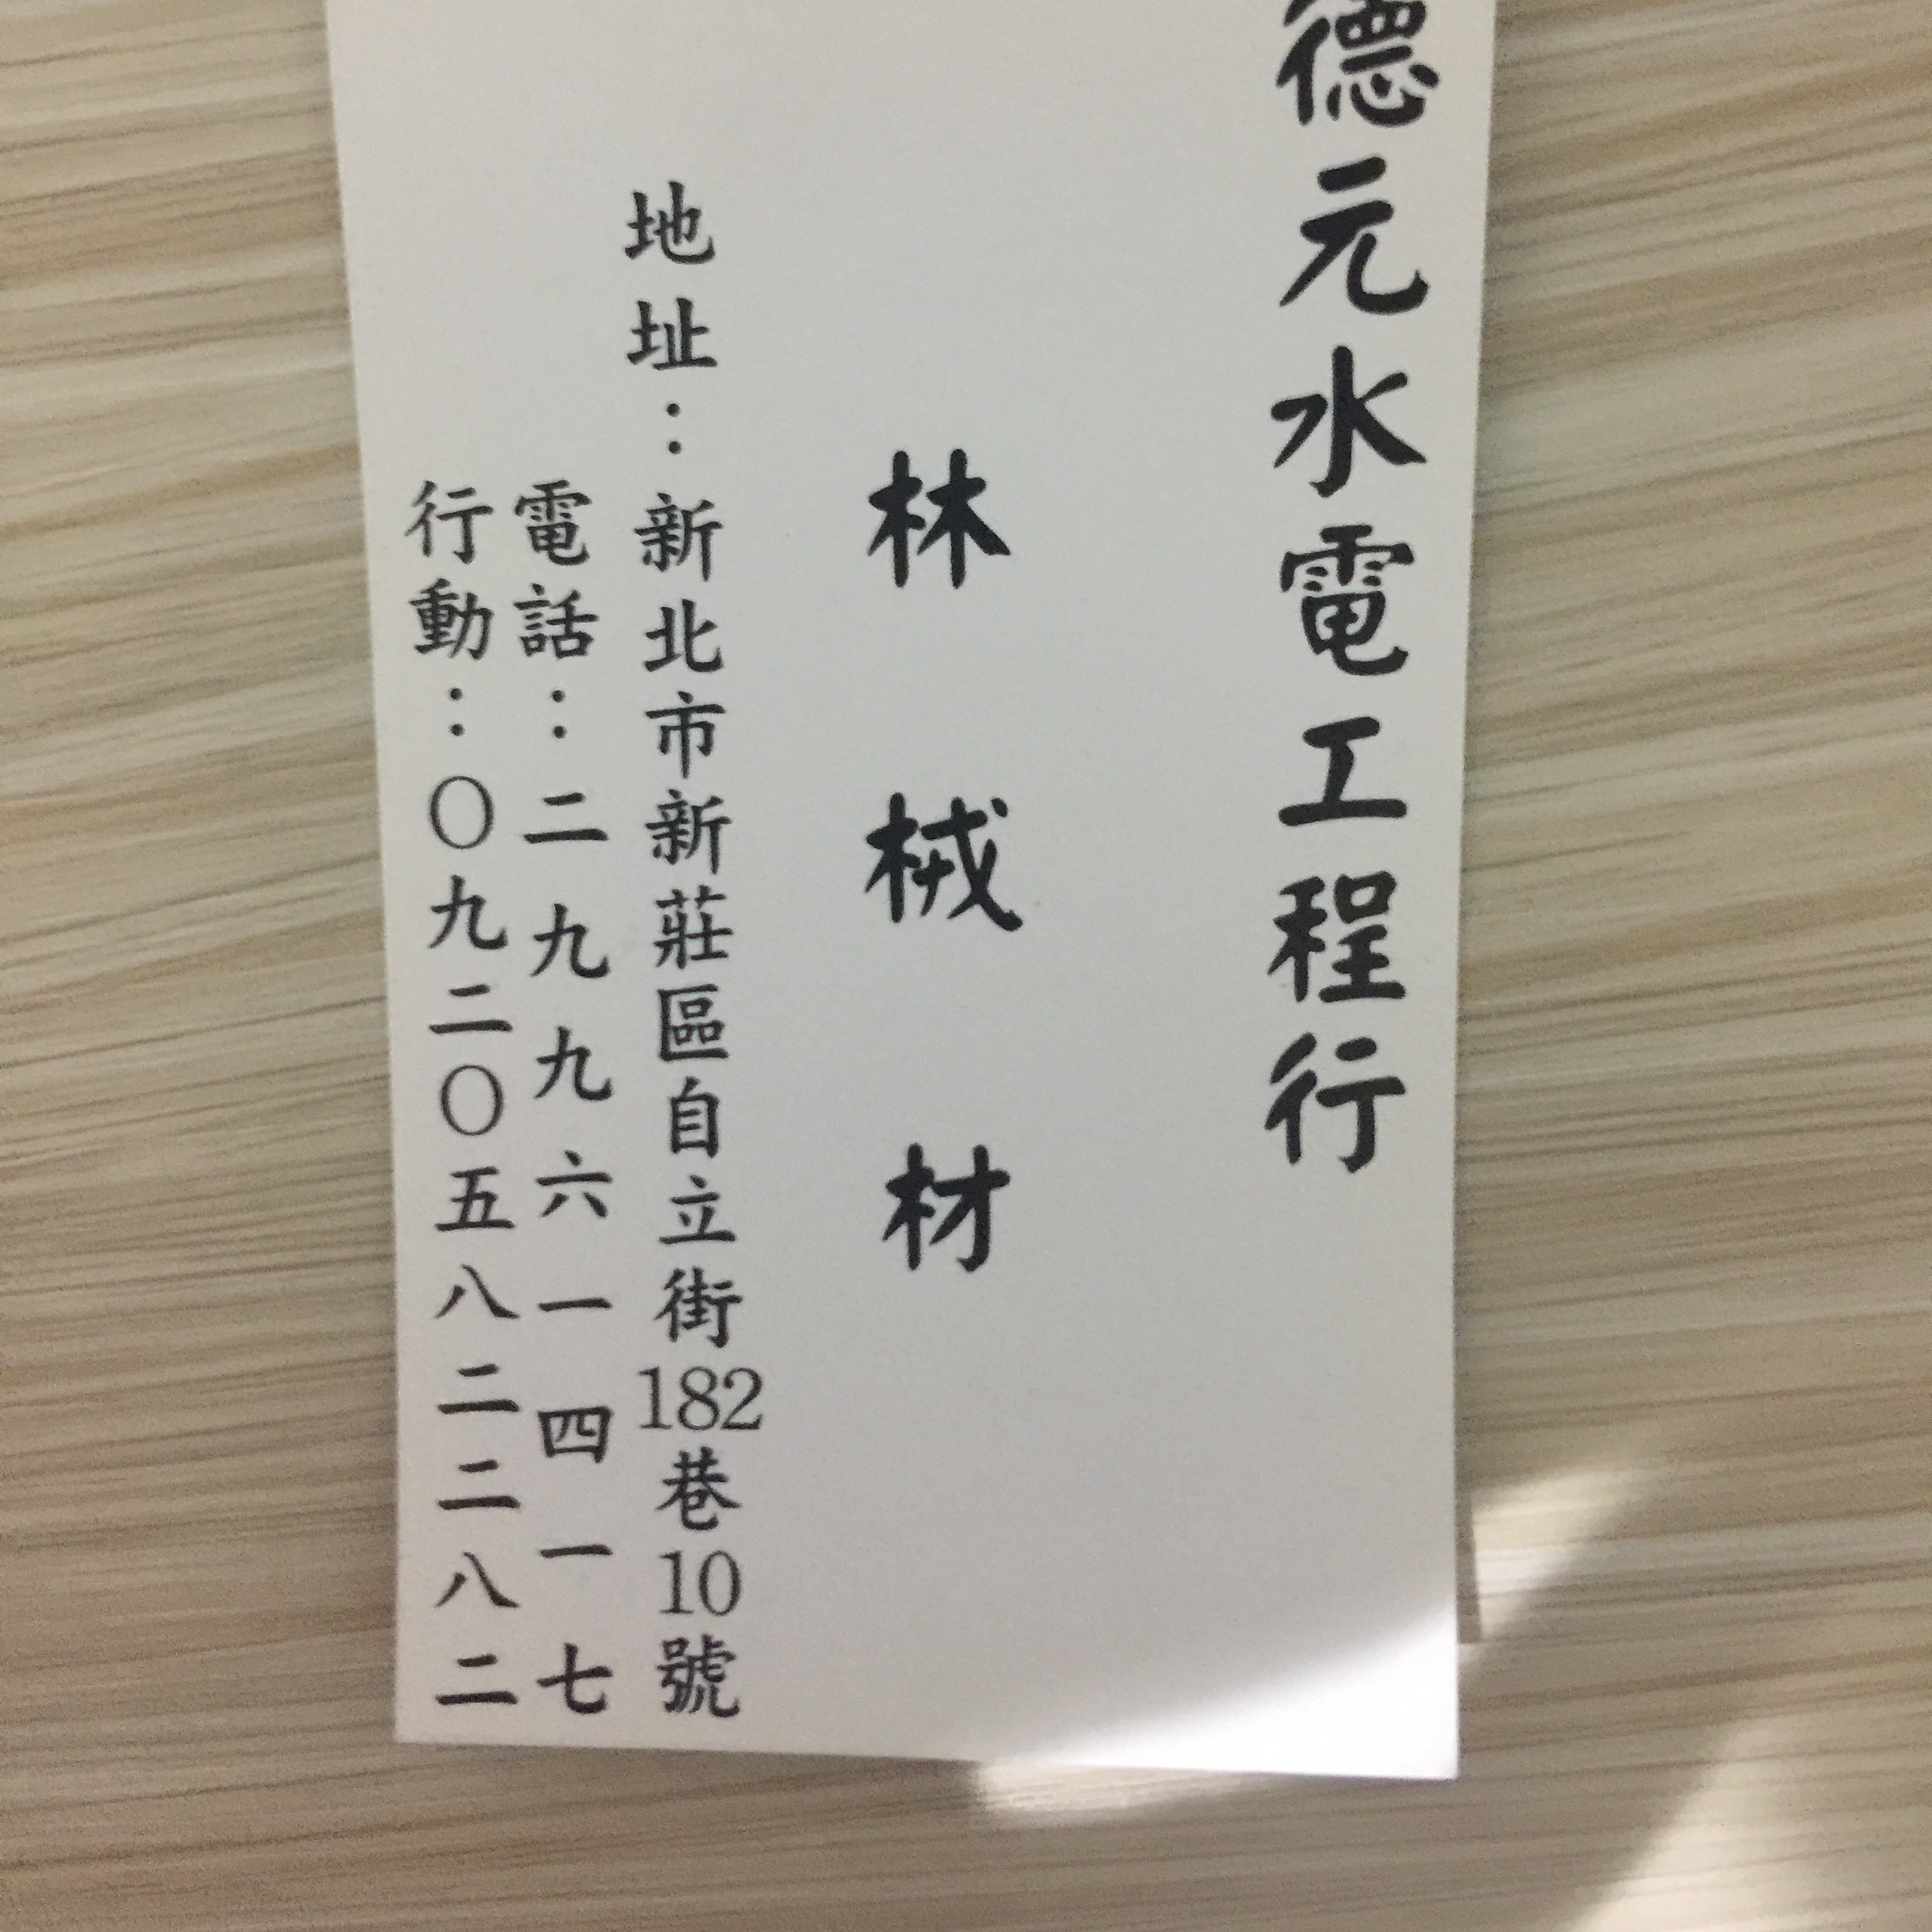 德元水電工程行
林械材
地址：新北市新莊區自立街182巷10號
電話：二九九六一四一七
行動：〇九二〇五八二二八二